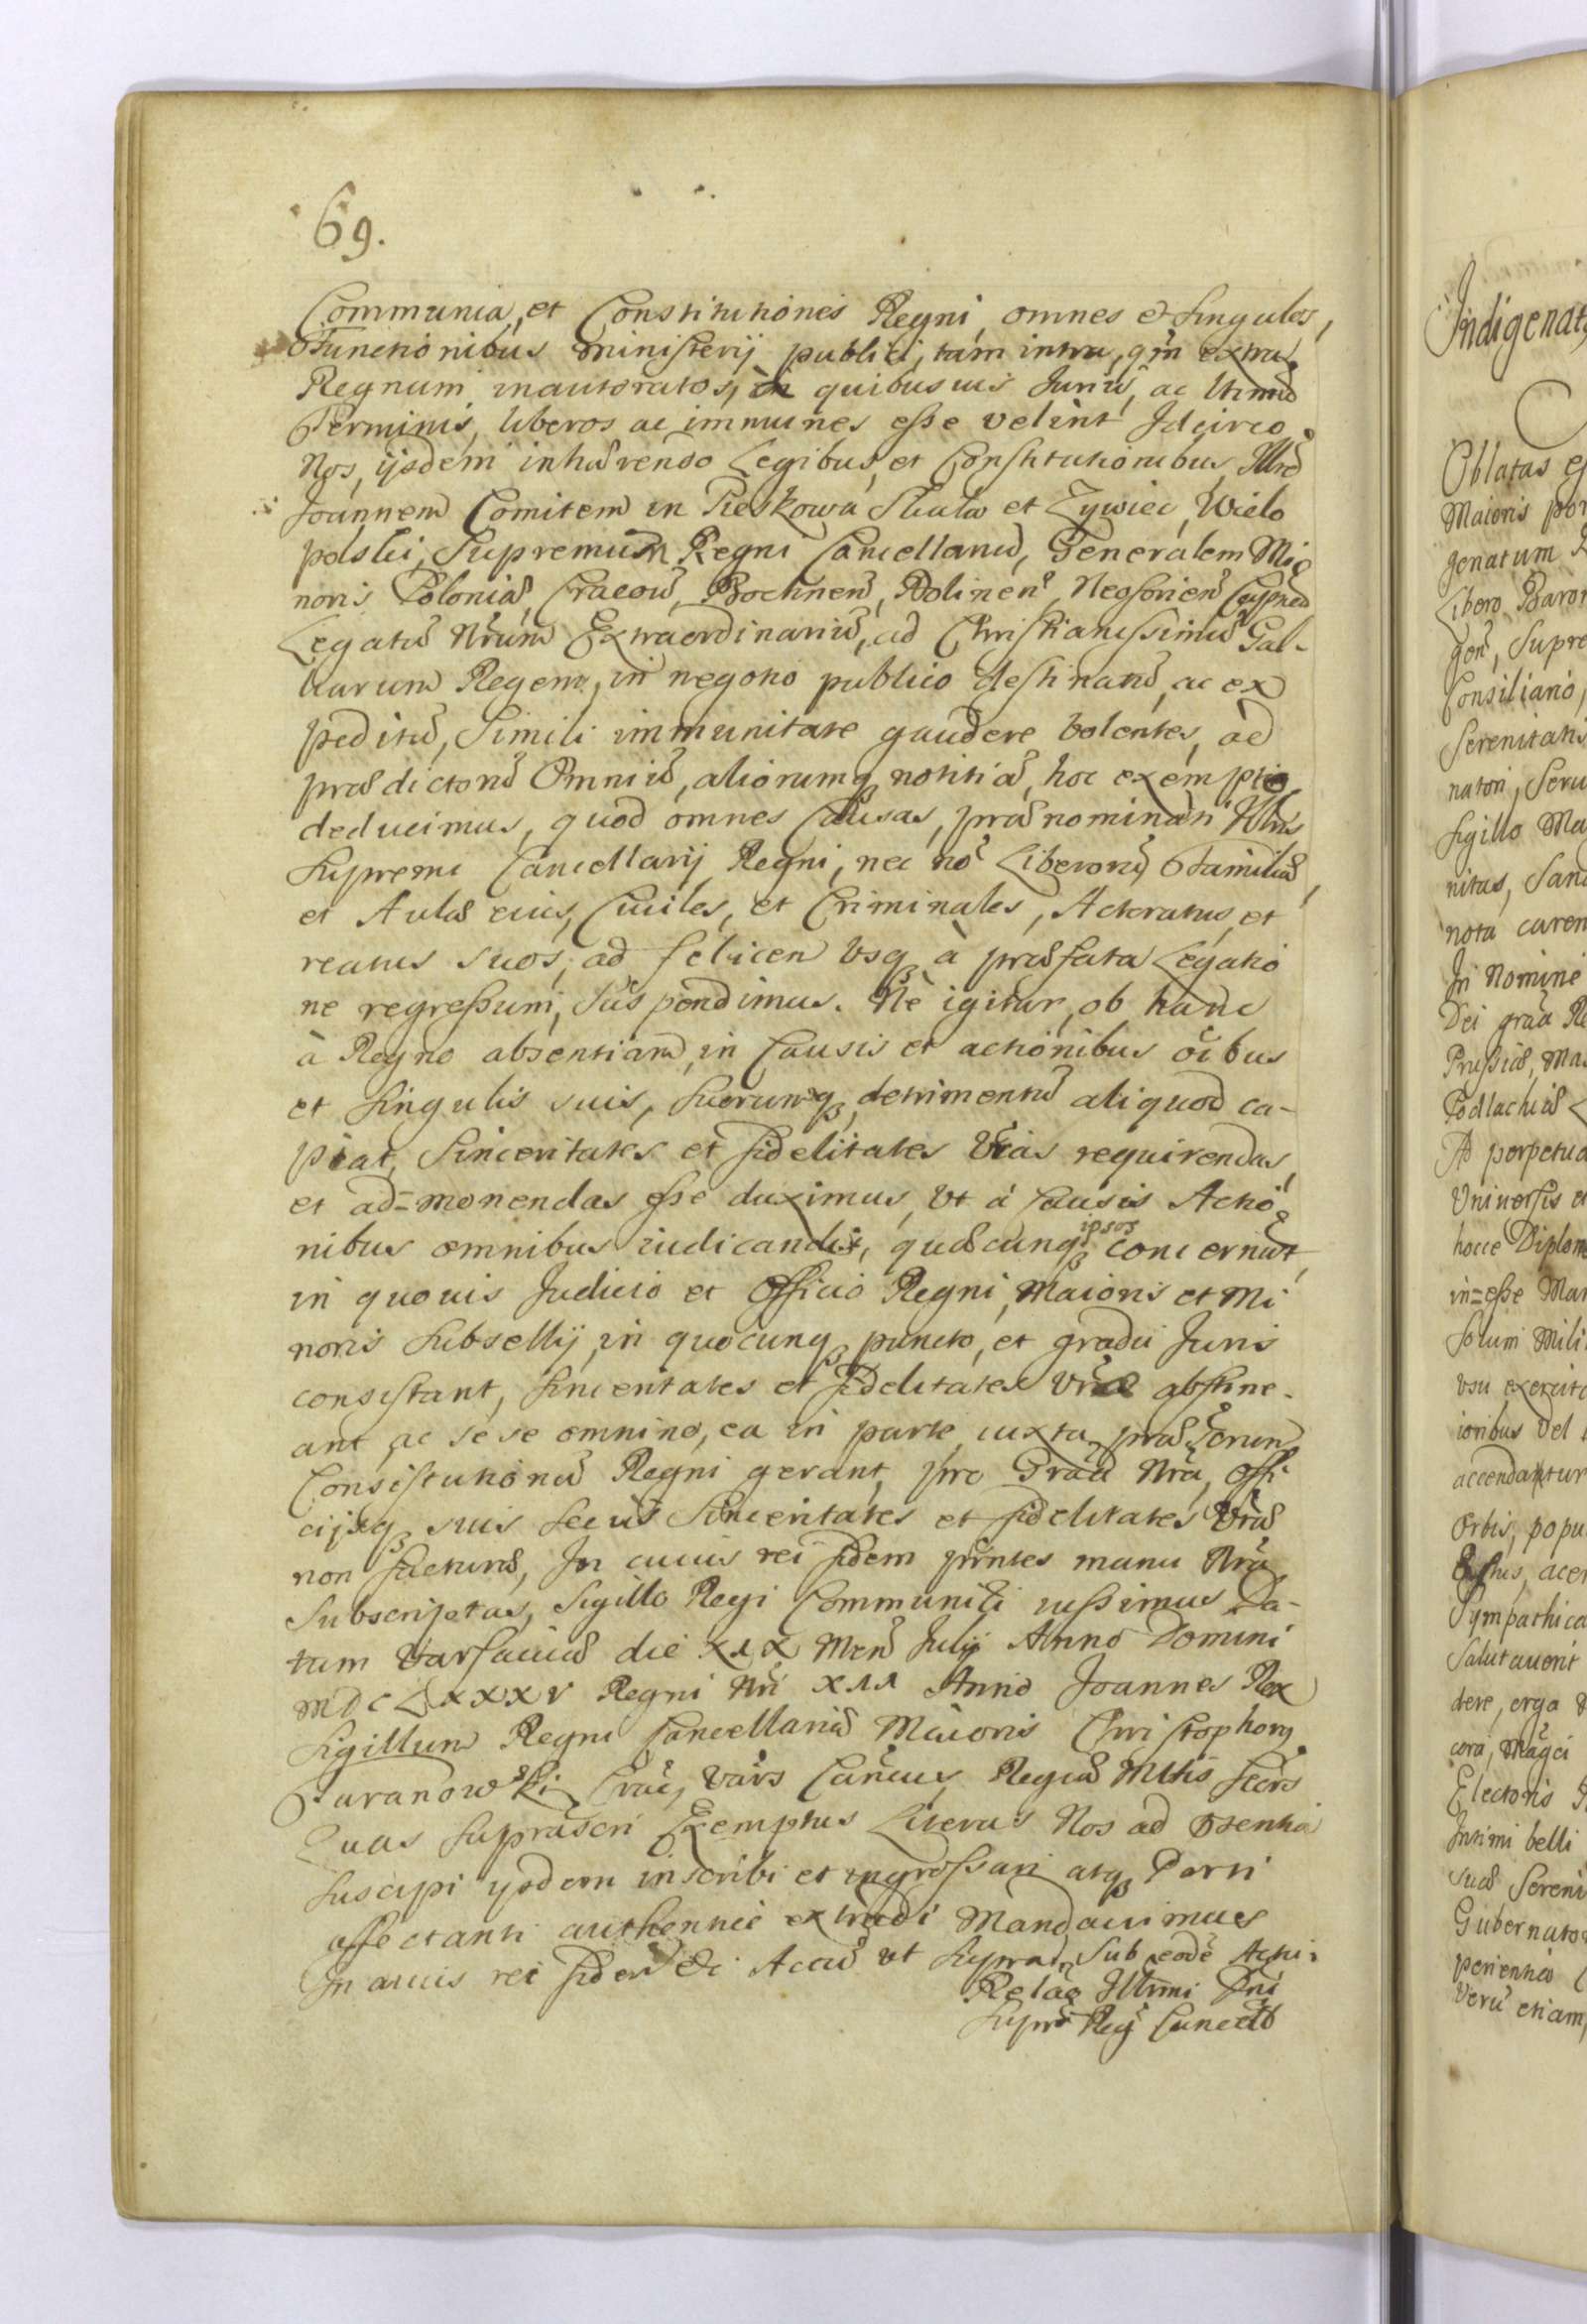 69.
Communia, et Constitutiones Regni, omnes et singulos,
Functionibus ministerij publici, tam intra, qm extra
Regnum inautoratos, in quibusuis Juriũ, ac litiũ
Terminis, liberos ac immunes esse velint Idcirco
Nos, ijsdem inhærendo Legibus, et Constitutionibus, Illrẽ
Joannem Comitem in Pieskowa Skała et Zywiec, Wielo
polski, Supremum Regni Cancellariũ, Generalem Mi
noris Poloniæ, Cracoũ, Bochneñ, Dolineñ, Neoforieñ Capneũ
Legatũ Nrum Extraordinariũ, ad Christianissimũ Gal-
liarum Regem, in negotio publico destinatũ, ac ex
peditũ, Simili immunitate gaudere volentes, ad
prædictorũ Omniũ, aliorumq notitiã, hoc exemptio
deducimus, quod omnes Causas, prænominati Illris
Supremi Cancellarij Regni, nec nõ Liberorũ, Familiæ,
et Aulæ eius, Ciuiles, et Criminales, Actoratus, et
reatus suos, ad felicem vsq à præfata Legatio
ne regressum, suspendimus. Nè igitur, ob hanc
à Regno absentiam, in Causis et actionibus oĩbus
et singulis suis, suorumq, detrimentũ aliquod ca-
piat, Sinceritates et fidelitates Vras requirendas,
et ad=monendas esse duximus, Vt à Causis Actio
nibus omnibus iudicandis, quæcunq ipsos concernũt,
in quouis Judicio et Officio Regni, Maioris et Mi
noris Subsellij, in quocunq puncto, et gradu Juris
consistant, sinceritates et fidelitates Vræ abstine-
ant, ac se se omnino, ea in parte, iuxta præstorum
Constitutionũ Regni gerant, pro Gratia Nra, offi
cijsq suis secus Sinceritates et fidelitates Vræ
non facturæ, In cuius rei fidem prntes manu Nra
Subscriptas, Sigillo Regi Communiri iussimus Da-
tum Varsauiæ die XIX Mens Julij Anno Domini
MDCLXXXV Regni Nri XII Anno Joannes Rex
Sigillum Regni Cancellariæ Maioris Christophory
Taranowski Crac, Vars Cancus, Regiæ Mttis Secrs
Quas Suprascri Exemptus Literas Nos ad
Suscipi ijsdem inscribi et ingrossari atq Parti
affectanti authentice extradi Mandauimus
In cuius rei fidem &c Actũ vt Suprat Sub eodẽ
Relão Illrmi Dni
Supri Reg Cancell
Indigenat
Oblatas
Maioris
genatum
Libero Baro
Supre
Consiliario,
Serenitatis
natori, Seru
Sigillo Ma
nitas, San
nota caren
In Nomine
Dei gratia Re
Prussiæ, Mas
Podlachiæ
Ad perpetua
Vniuersis
hocce Diplom
in=esse Mar
Solum Mili
vsu exercita
ioribus Vel
accendantur
Orbis, popu
acer
Sympathica
Salutauerit
dere, erga
cera, Magci
Electoris
Intimi belli
suæ Sereni
Gubernator
perientia
Verũ etiam,